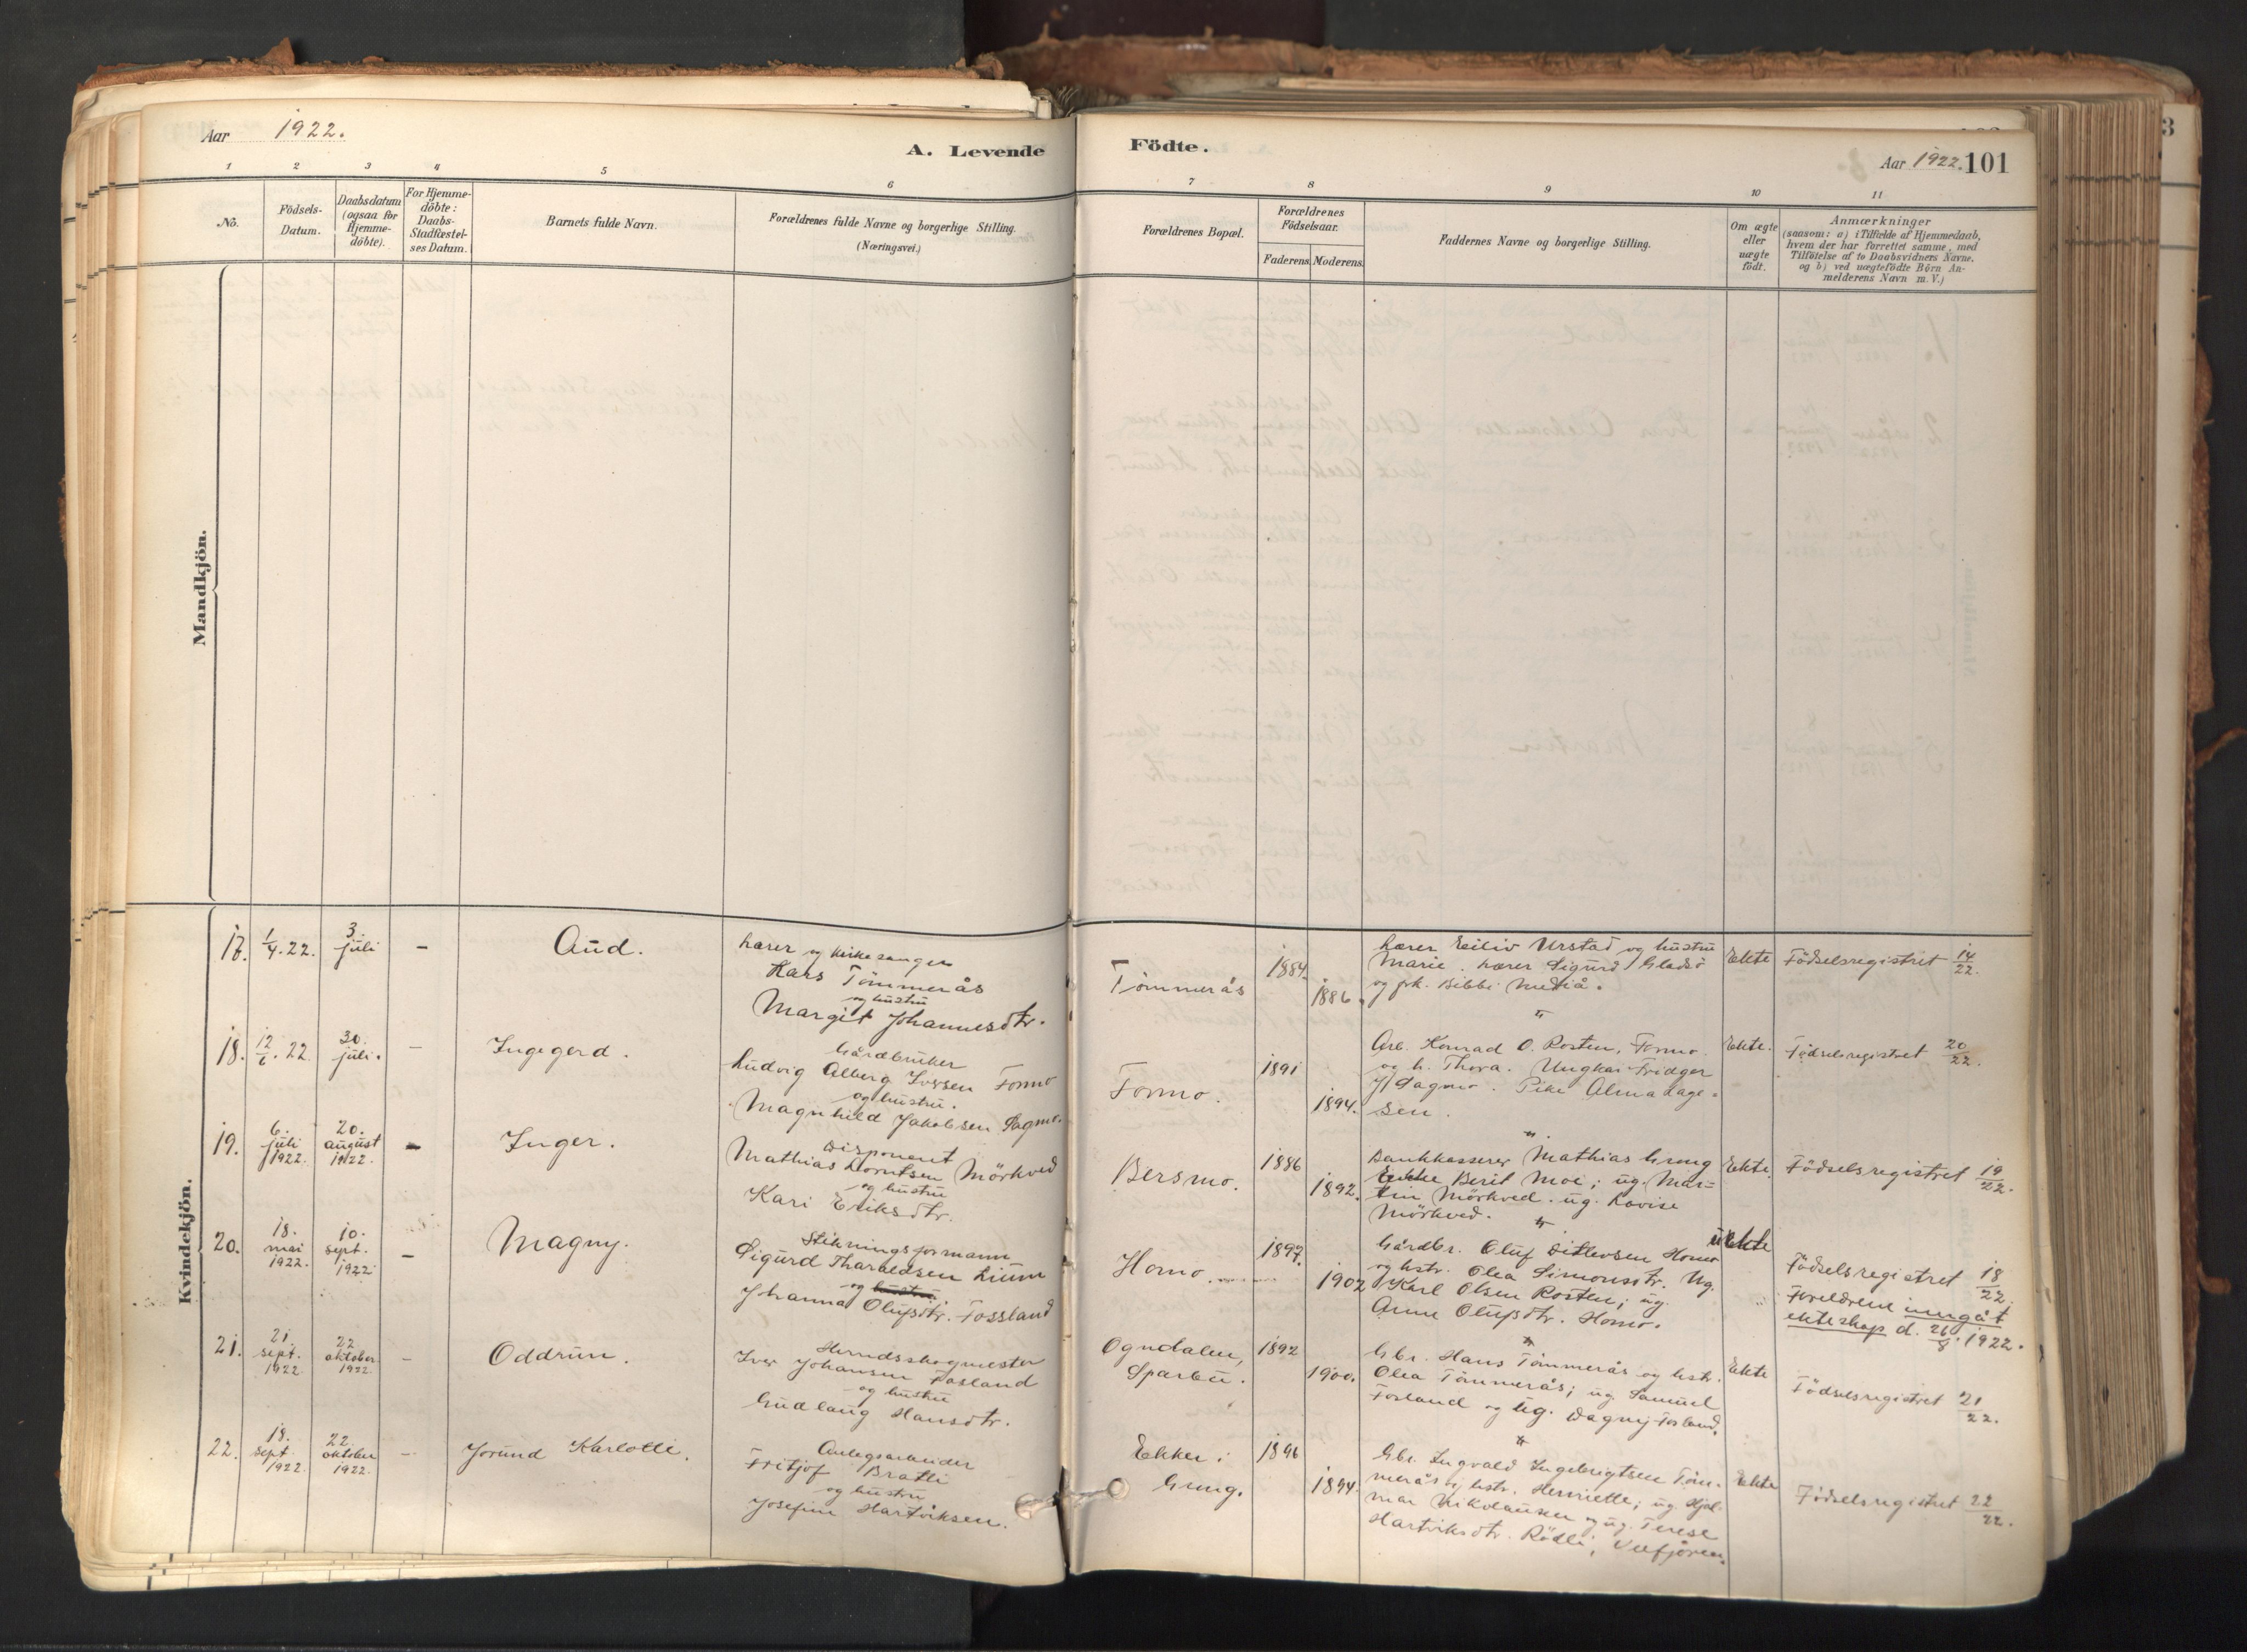 Aar 1922.
A. Levende
Födte.
Aar 1922. 101
1 2 3 4 5 6 7 8 9 10 11
No.
Födsels-
Datum.
Daabsdatum
(ogsaa for
Hjemme-
döbte).
For Hjemme-
döbte:
Daabs-
Stadfæstel-
ses Datum.
Barnets fulde Navn.
Forældrenes fulde Navne og borgerlige Stilling.
(Næringsvei.)
Forældrenes Bopæl.
Forældrenes
Födselsaar.
Faderens. Moderens.
Faddernes Navne og borgerlige Stilling.
Om ægte
eller
uægte
födt.
Anmærkninger
(saasom: a) i Tilfælde af Hjemmedaab,
hvem der har forrettet samme, med
Tilföielse af to Daabsvidners Navne.
og b) ved uægtefödte Börn An-
melderens Navn m.V.)
Mandkjön.
Kvindekjön.
17. 1/4. 22. 3. juli - Aud.
Lærer og kirkesanger
Lars Tömmerås
og hustru
Margit Johannesdtr.
Tömmerås
1884.
1886.
Lærer Eiliv Urstad og hustru
Marie. Lærer Sigurd Gladsö
og frk. Bibbi Mediå.
Ekte
Födselsregistret 14/22.
18. 12/6. 22. 30. juli. - Ingegerd.
Gårdbruker
Ludvig Alberg Iversen Formo
og hustru.
Magnhild Jakobsen Dagmo.
Formo.
1891
1894.
Arb. Konrad O. Rosten, Formo
og h. Thora. Ungkar Fridger
J Dagmo. Pike Alma Lage=
sen.
Ekte.
Födselsregistret 20/22.
19. 6. juli 1922. 20. august 1922. - Inger.
Disponent
Mathias Lorntsen Mörkved
og hustru
Kari Eriksdtr.
Bersmo.
1886
1892.
Bankkasserer Mathias Grong
Enke Berit Moe; ug. Mar=
tin Mörkved. ug. Lovise
Mörkved.
Ekte.
Födselsregistret 19/22.
20. 18. mai 1922. 10. sept. 1922 - Magny.
Stikningsformann
Sigurd Tharaldsen Lium
og hustru.
Johanna Olufsdtr. Fossland
Homo.
1897.
1902
Gårdbr. Oluf Ditlevsen Homo
og hstr. Olea Simonsdtr. Ug.
Karl Olsen Rosten; ug.
Anne Olufsdtr. Homo.
uekte
Födselsregistret 18/22.
Foreldrene inngåt
ekteskap d. 26/8. 1922.
21. 21. sept. 1922 22 oktober 1922 - Oddrun.
Herredsskogmester
Iver Johansen Fosland
og hustru
Gudlaug Hansdtr.
Ogndalen,
Sparbu.
1892
1900.
Gbr. Hans Tömmerås og hstr.
Olea Tömmerås; ug. Samuel
Forland og ug. Dagny Fosland.
Ekte
Födselsregistret 21/22.
22. 18. sept. 1922 22. oktober 1922. - Jorund Karlotte.
Anlegsarbeider
Fritjof Bratli
og hustru
Josefine Hartviksen.
Ekker i
Grong.
1896
1894.
Gbr. Ingvald Ingebrigtsen Töm-
merås og hstr. Henriette; ug. Hjal-
mar Nikolaisen og ug. Terese
Hartviksdtr. Rödli, Velfjorden.
Ekte
Födselsregistret 22/22.